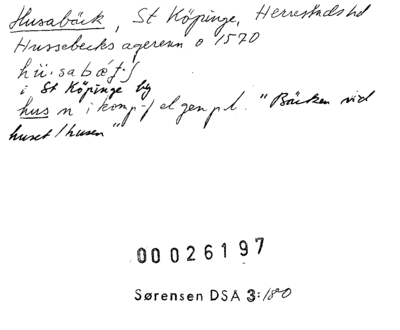 Husabäck, St Köpinge, Herrestads hd
Hussebecks ageren o 1570
hü·sabæ̨·ʃ
i St Köpinge by
hus n i komp-f el gen pl. "Bäcken vid
huset/husen"
00026197
Sørensen DSA 3:180